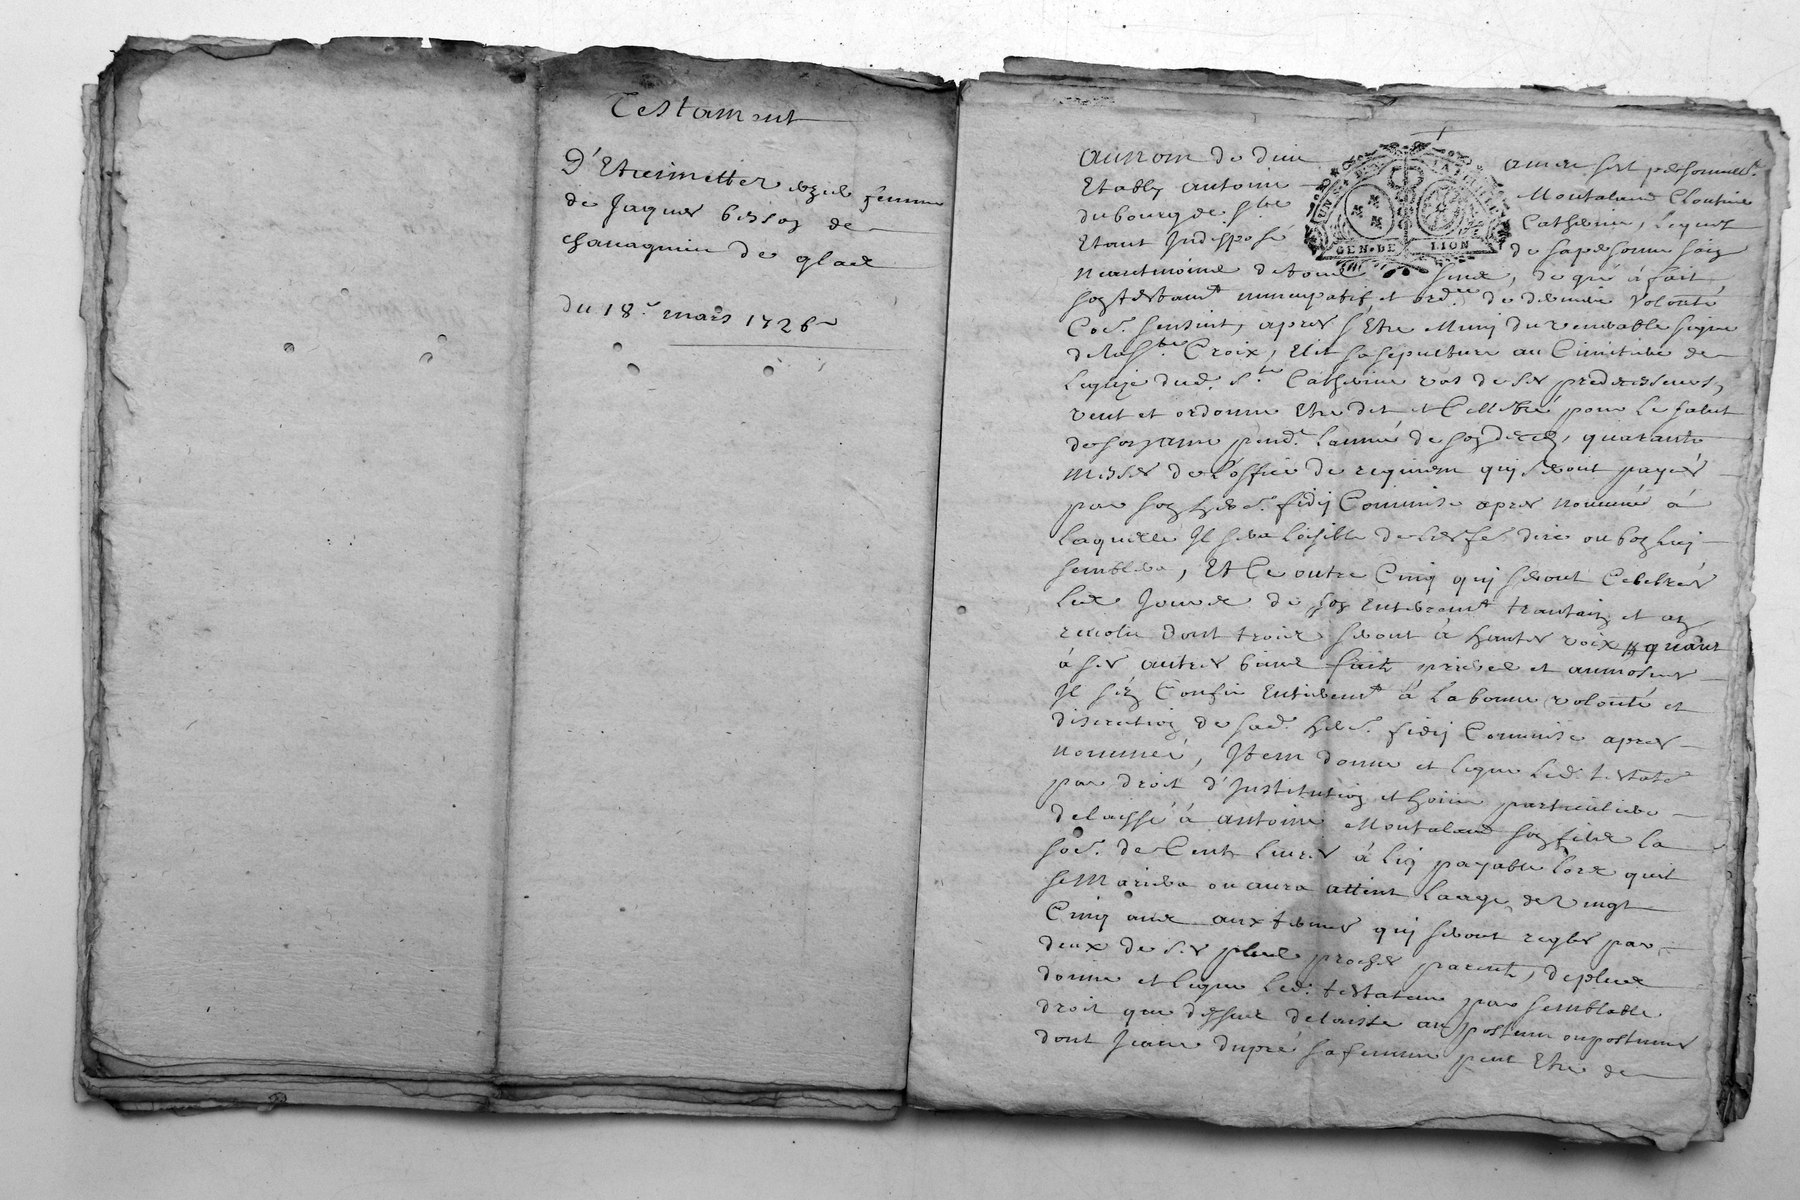 Testament
D'Etiennetter femme
de Jaques bisson de
chavagnieu de
du 18e. mars 1726
GEN. DE LION
Au nom de dieu amen fut personnellt.
Etably antoine Montaland Cloutier
du bourg de Ste Catherine, Lequel
Etant Indisposé de sa personne saiz
neantmoins de tous sens, de gré à fait
soz testamt nuncupatif et ordce de derniere volonté
Co'e. sensuit, apres s'Etre Muny du venerable signe
de la Ste Croix, Elit sa sepulture au Cimitiere de
Leglize dud. Ste Catherine vas de ses predecesseurs,
veut et ordonne Etre dit et Cellebré pour le salut
de son ame pendt. l'année de soz decez, quarante
Messes de l'office de requiem quy seront payées
par soz here. fidy Commise apres nommée à
Laquelle Il sera loisible de les fe. dire ou boz luy
semblera, Et Ce outre Cinq quy seront Celebrées
Les Jours de soz Enterremt trantaiz et az
revolu dont trois seront à hautes voix quant
à ses autres biens faits prieres et aumosnes
Il s'ez Confie Entierement à la bonne volonté et
discretioz de sad. here. fidy Commise apres
nommée, Item donne et legue led. testate.
par droit d'Institutioz et hoirie particuliere
delaissé à antoine Montaland soz fils la
so'e. de Cent Livres à luy payable lors quil
se Mariera ou aura attint l'aage de vingt
Cinq ans aux termes quy seront reglés par
deux de ses plus proches parents, de plus
donne et legue led. testateur par semblable
droit que dessus delaisse au postum ou postumes
dont Jeane dupré sa femme peut Etre de